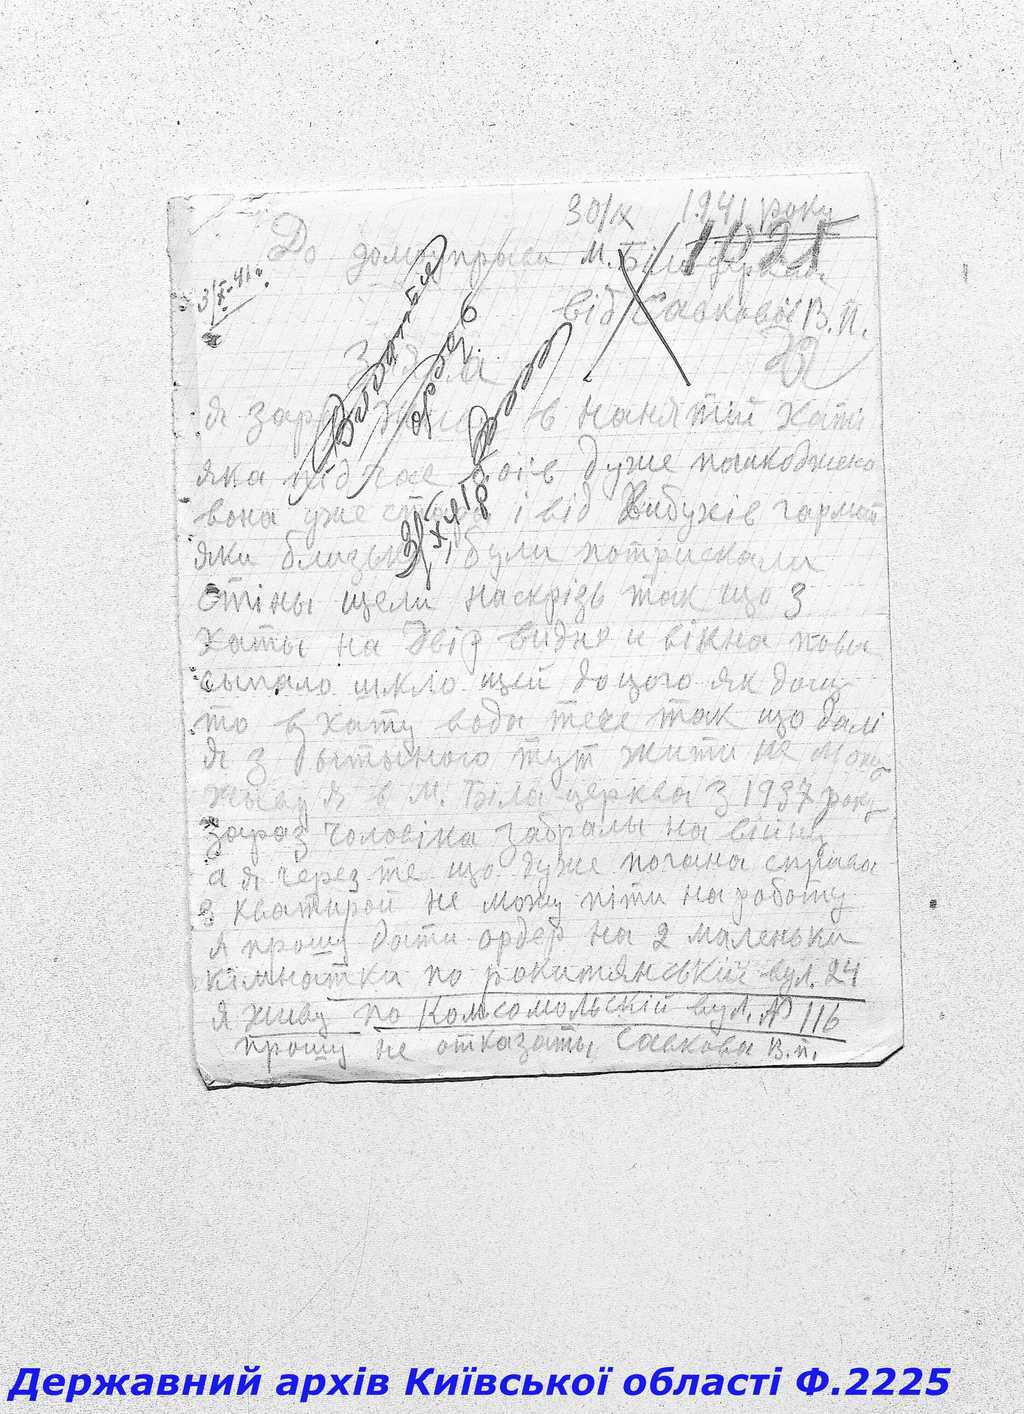 30/IX 1941 року
1021
До домупрывы м. Біла церква
3/X-41.
від Савковоі В.П.
Заява
Я зараз живу в нанятий хаті
яка під час боів дуже пошкоджена
вона уже стара і від Вибухів гармат
яки близько були потрискали
стіны щели наскрізь так що з
хаты на двір видно и вікна повы
сыпало шкло щей до цого як дощ
то в хату вода тече так що далі
я з дытыною тут жити не можу
жыву я в м. Біла церква з 1937 року
зараз чоловіка забралы на війну
а я через те що дуже погана справа
з кватирой не можу піти на роботу
я прошу дати ордер на 2 маленьки
кімнатки по рокитянській вул. 24
я живу по Комсомольскій вул. № 116
прошу не отказаты Савкова В.П.
Видати
ордер
3/X
Державний архів Київської області Ф.2225